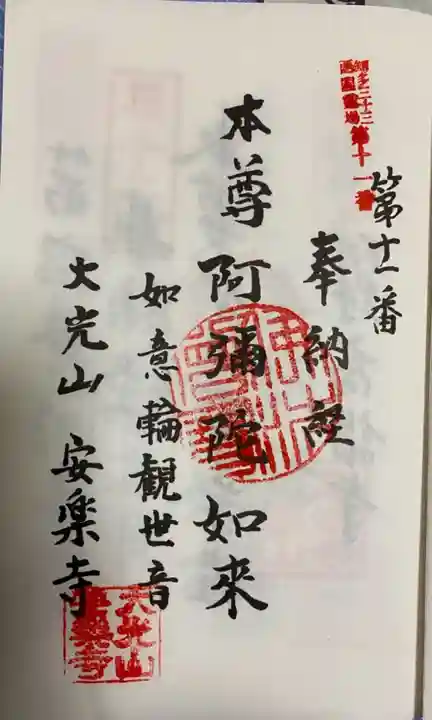 第十一番
第十一番
奉納経
本尊阿彌陀如来
如意輪観世音
大光山 安楽寺
大光山
安樂寺